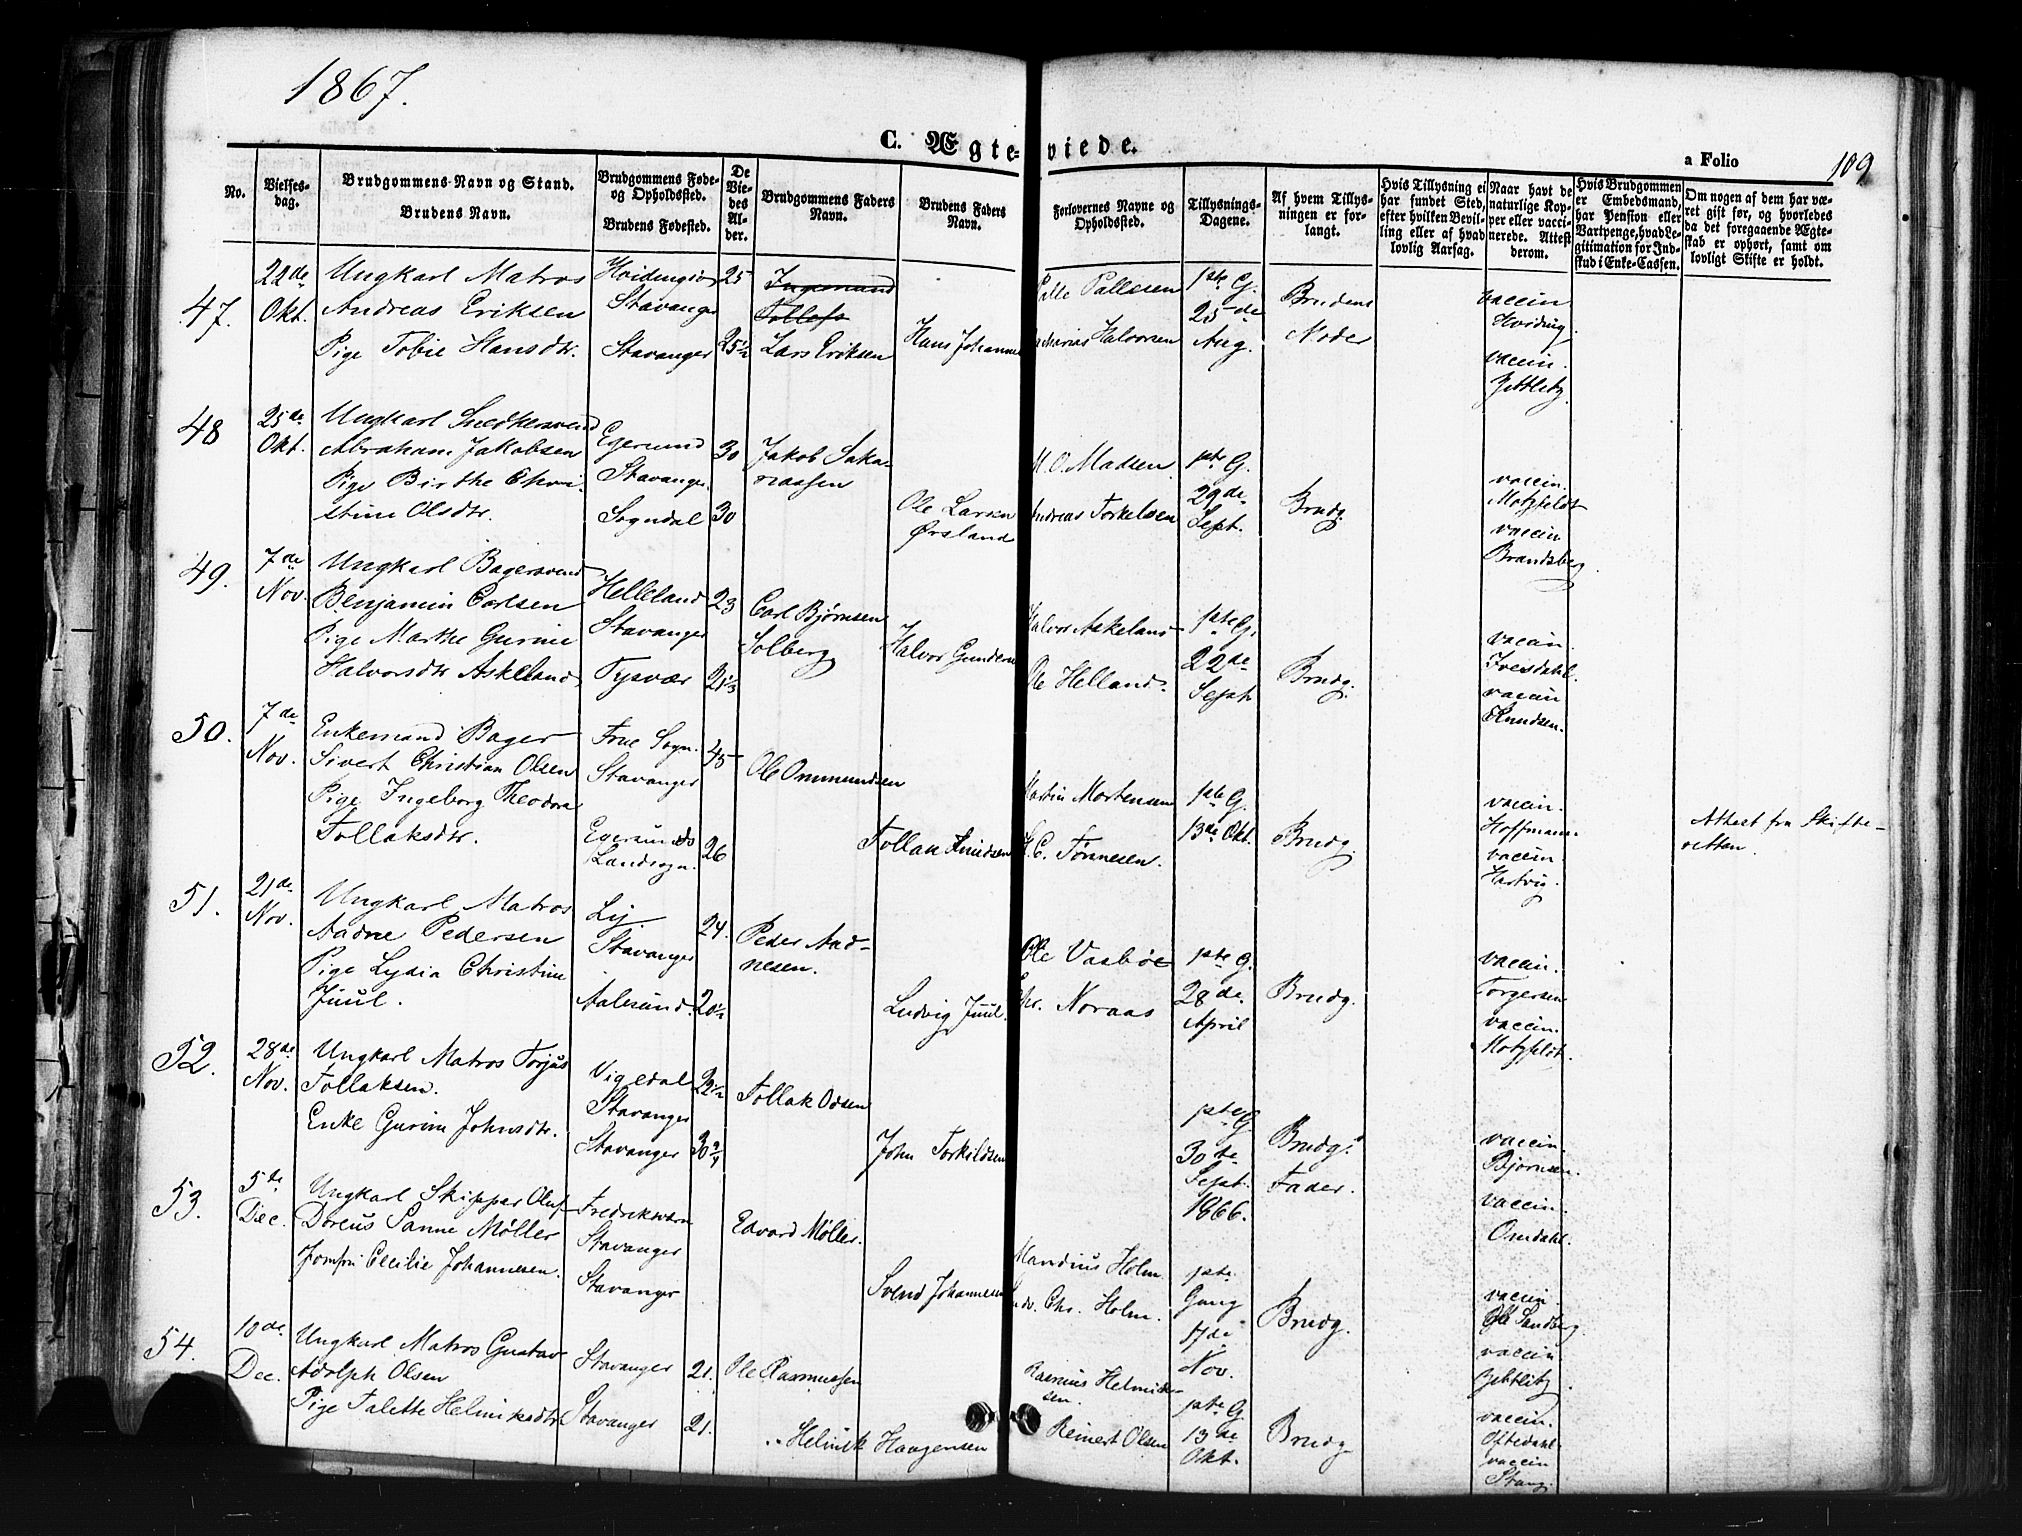 1867.
C. Ægteviede.
a Folio 109
No.
Vielses-
dag.
Brudgommens Navn og Stand.
Brudens Navn.
Brudgommens Føde-
og Opholdssted.
Brudens Fødested.
De
Vie-
des
Al-
der.
Brudgommens Faders
Navn.
Brudens Faders
Navn.
Forlovernes Navne og
Opholdssted.
Tillysnings-
Dagene.
Af hvem Tillys-
ningen er for-
langt.
Hvis Tillysning ei
har fundet Sted,
efter hvilken Bevil-
ling eller af hvad
lovlig Aarsag.
Naar havt de
naturlige Kop-
per eller vacci-
nerede. Attest
derom.
Hvis Brudgommen
er Embedsmand,
har Pension eller
Vartpenge, hvad Le-
gitimation for Ind-
skud i Enke-Cassen.
Om nogen af dem har væ-
ret gift før, og hvorledes
da det foregaaende Ægte-
skab er ophørt, samt om
lovligt Skifte er holdt.
47.
22de
Okt.
Ungkarl Matros
Andreas Eriksen
Pige Tobie Hansdtr.
Stavanger
Stavanger
25
25½
Ingemund
Tollefs
Lars Eriksen
Hans Johannes
Palle Pallesen
Halvorsen
1ste G.
25de
Aug.
Brudens
Moder
vaccin
Hviding.
vaccin.
Zetlitz.
48
25de
Okt.
Ungkarl Snedkersvend
Abraham Jakobsen
Pige Birthe Chri-
stine Olsdtr.
Egersund
Stavanger.
Sogndal
30
30
Jakob Saka-
riassen
Ole Larsen
Ørsland
M. O. Madsen
Andreas Torkelsen
1ste G.
29de
Sept.
Brudg.
vaccin.
Motzfeldt
vaccin
Brandsberg.
49.
7de
Nov.
Ungkarl Bagersvend
Benjamin Carlsen
Pige Marthe Gurine
Halvorsdtr Askeland
Helleland
Stavanger
Tysvær
23
21⅓
Carl Bjørnsen
Solberg
Halvor Gunders
Halvor Askeland
Ole Helland.
1ste G.
22de
Sept
Brudg.
vaccin.
Ivesdahl.
vaccin
Knudsen.
50.
7de
Nov.
Enkemand Bager
Sivert Christian Olsen
Pige Ingeborg Theodora
Tollaksdtr.
Frue Sogn.
Stavanger
Egersunds
Landsogn.
45
26
Ole Ommundsen
Tollak Knudsen
Martin Mortensen
H. C. Tønnesen.
1ste G.
13de Okt.
Brudg.
vaccin.
Hoffmann
vaccin.
Hartvig.
Attest fra Skifte-
retten.
51.
21de
Nov.
Ungkarl Matros
Aadne Pedersen
Pige Lydia Christine
Juul.
Lij
Stavanger
Aalesund.
24.
20½
Peder Aad-
nesen.
Ludvig Juul.
Ole Vasbøe
Chr. Noraas
1ste G.
28de
April
Brudg.
vaccin.
Torgersen
vaccin.
Motzfeldt.
52.
28de
Nov.
Ungkarl Matros Torjus
Tollaksen.
Enke Gurine Johnsdtr.
Vigedal
Stavanger
Stavanger
22½
30¾
Tollak Odsen
John Torkildsen
1ste G
30te
Sept.
1866.
Brudg.s
Fader.
vaccin.
Bjørnsen.
vaccin.
Omdahl.
53.
5te
Dec.
Ungkarl Skipper Oluf
Doreus Sanne Møller
Jomfru Cecilie Johannesen.
Fredriksværn
Stavanger
Stavanger
Edvard Møller.
Svend Johannesen
Mandius Holm.
Chr. Holm.
1ste
Gang
17de
Nov.
Brudg.
vaccin.
Ole Sandberg.
vaccin.
Zetlitz.
54.
10de
Dec.
Ungkarl Matros Gustav
Adolph Olsen
Pige Talette Helmiksdtr
Stavanger
Stavanger
21.
21.
Ole Rasmussen
Helmik Haagensen
Rasmus Helmik-
sen.
Reinert Olsen
1ste G
13de
Okt.
Brudg
vaccin.
Oftedahl
vaccin
Stang.